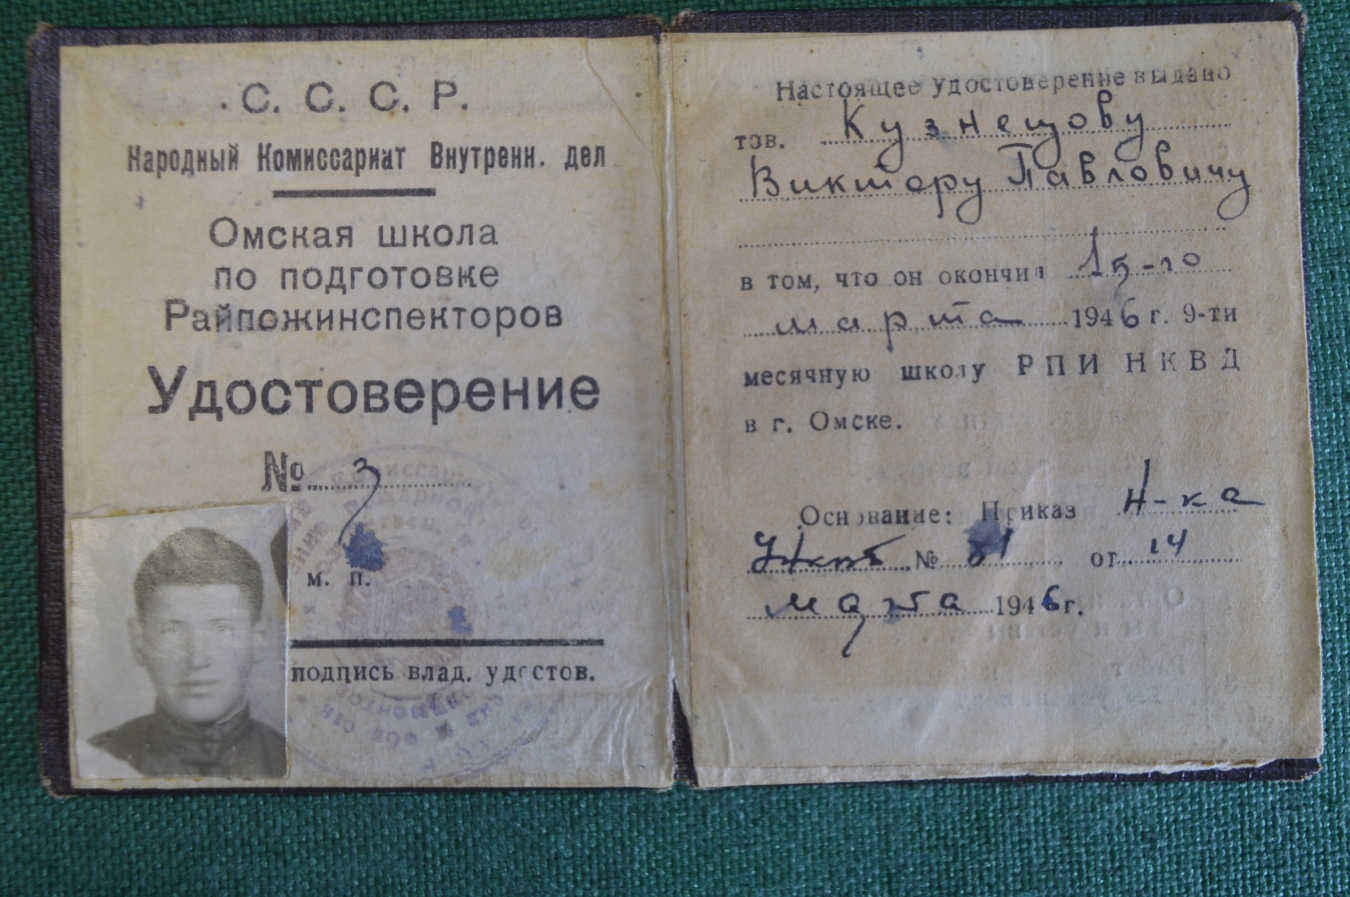 С. С. С. Р.
Народный Комиссариат Внутренн. дел
Омская школа
по подготовке
Райпожинспекторов
Удостоверение
№ 3
м. п.
подпись влад. удостов.
Настоящее удостоверение выдано
тов. Кузнецову
Виктору Павловичу
в том, что он окончил 15-го
марта 1946 г. 9-ти
месячную школу РПИ НКВД
в г. Омске.
Основание: Приказ Н-ка
№ 81 от 14
марта 1946 г.